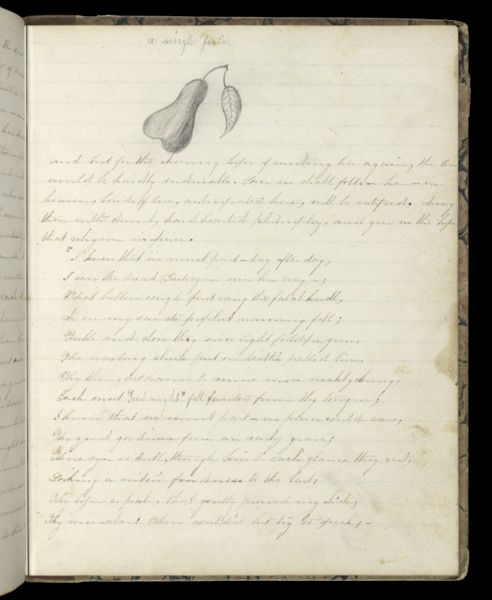 a single
and but for the cheering hope of meeting her again, the
would be hardly endurable. Soon we shall follow her — in
heaven, broken ties, will be
then with stern, hard hearted philosophy, and give me the hope
that religion
"I knew that we must part — day after day,
I saw the dread Destroyer win his way —;
That hollow cough first rang the fatal knell,
As on my ear its prophet warning fell;
Feeble and slow thy once light footstep grew,
Thy wasting cheek put on death's pallid hue,
Thy thin, hot hand to mine more weakly clung,
Each sweet "Good night" fell fainter from thy tongue;
I knew that we must part — no power could save,
Thy quiet goodness from an early grave;
Those eyes so dull, though kind each glance they cast,
Looking a sister's fondness to the last;
Thy lips so pale, that gently pressed my cheek;
Thy voice — alas! Thou could'st but try to speak; —